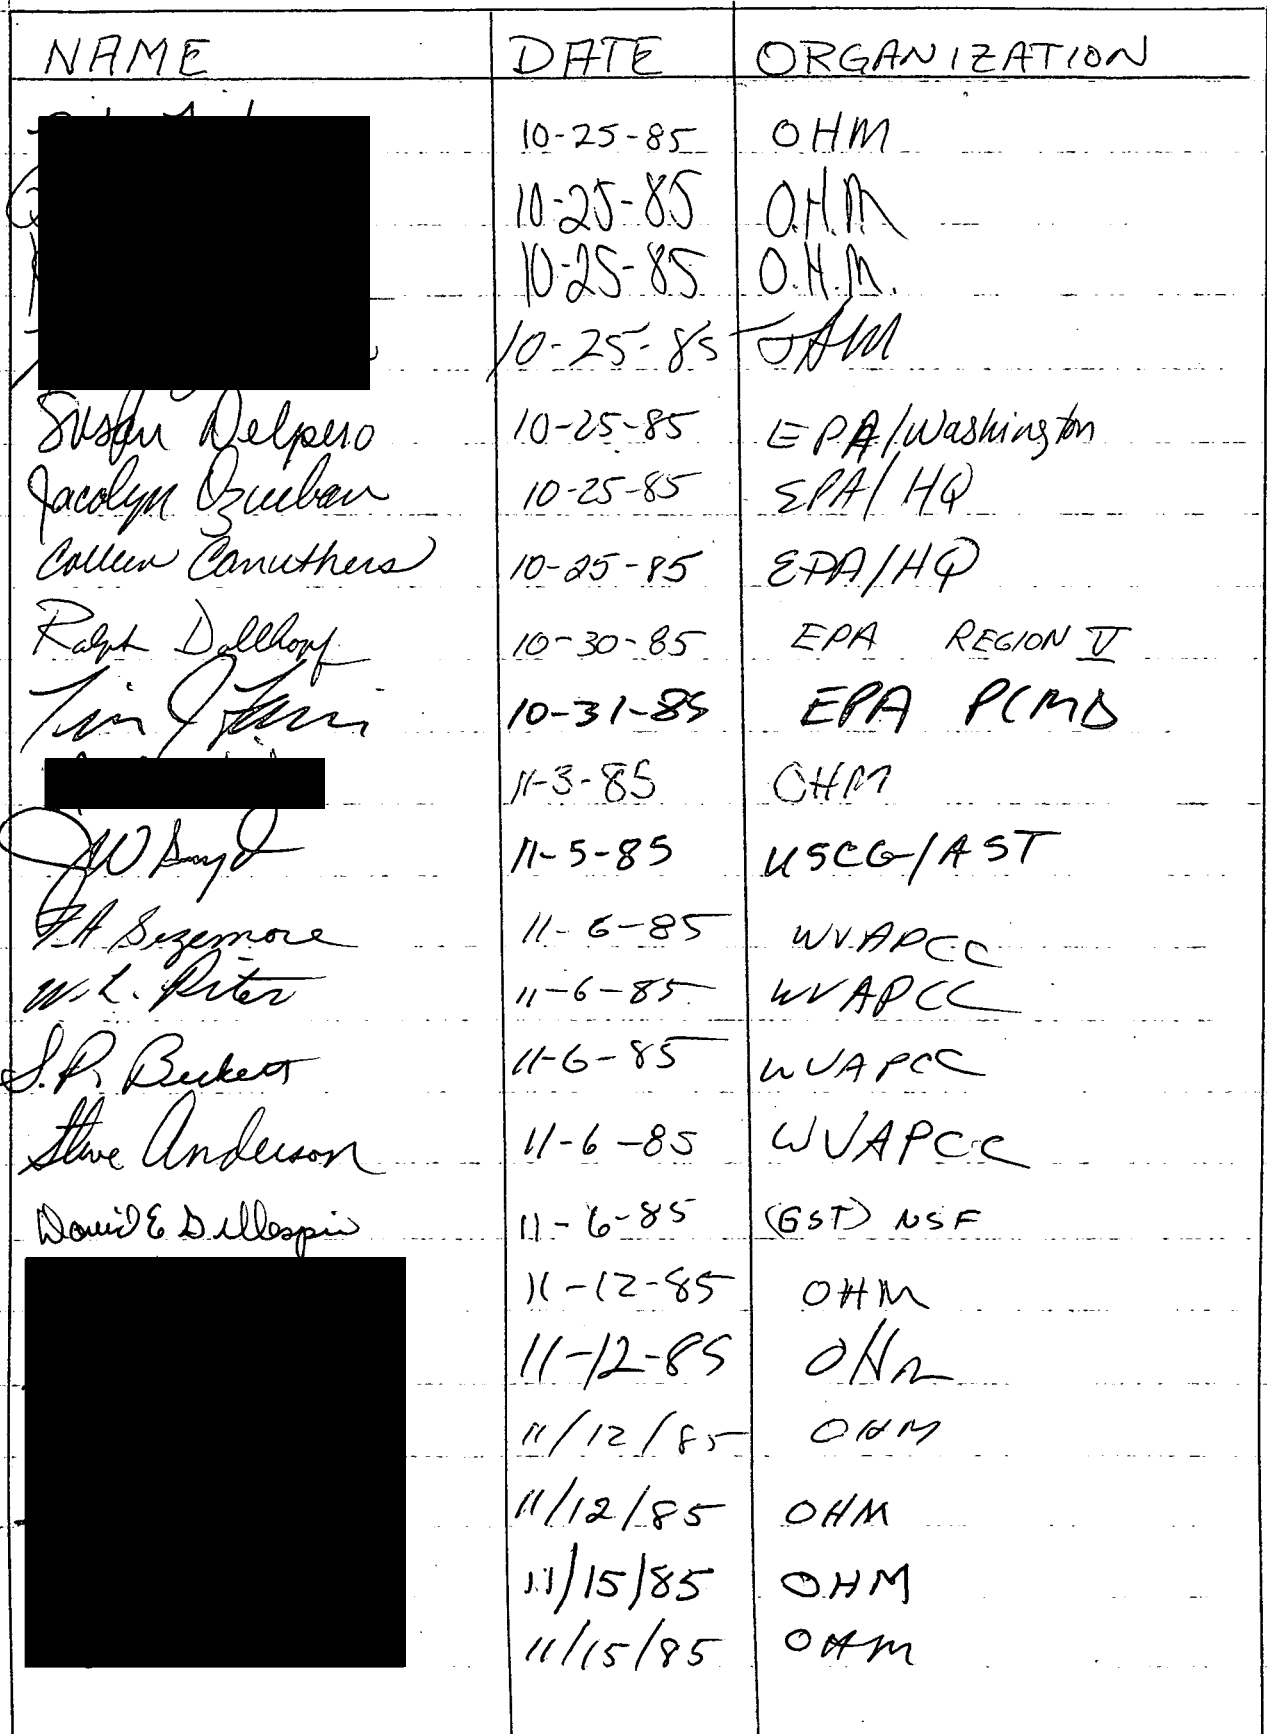 NAME DATE ORGANIZATION
10-25-85 OHM
10-25-85 O.H.M
10-25-85 O.H.M.
10-25-85 OHM
Susan Delpero 10-25-85 EPA/Washington
Jacolyn 10-25-85 EPA/HQ
Colleen Carruthers 10-25-85 EPA/HQ
Ralph Dollhopf 10-30-85 EPA REGION V
Tim J 10-31-85 EPA PCMD
11-3-85 OHM
JW Boyd 11-5-85 USCG/AST
F.A Sizemore 11-6-85 WVAPCC
W.L. 11-6-85 WVAPCC
S.P. Beckett 11-6-85 WVAPCC
Steve Anderson 11-6-85 WVAPCC
David E Gillespie 11-6-85 (GST) NSF
11-12-85 OHM
11-12-85 OHM
11/12/85 OHM
11/12/85 OHM
11/15/85 OHM
11/15/85 OHM